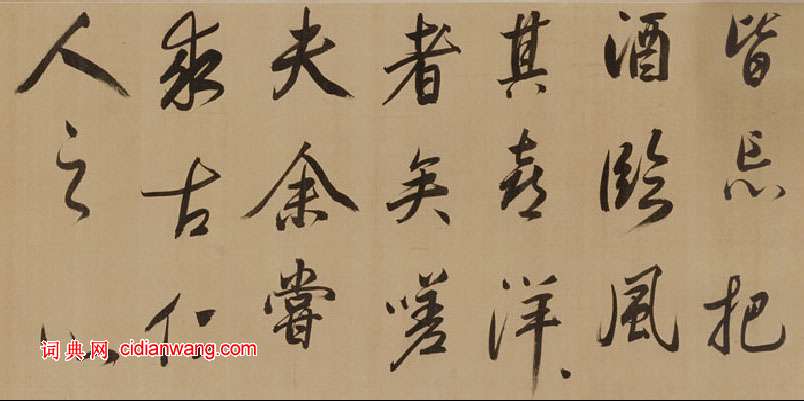 皆忘把
酒臨風
其喜洋〻
者矣嗟
夫余嘗
求古仁
人之心
词典网 cidianwang.com